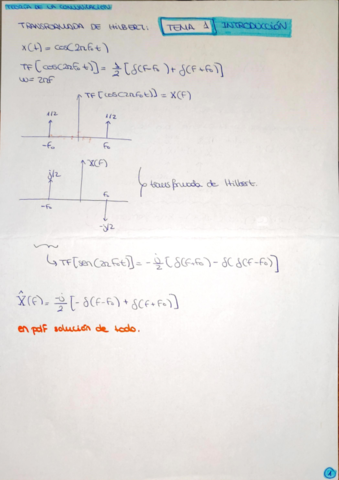 TEORÍA DE LA COMUNICACIÓN
TRANSFORMADA DE HILBERT: TEMA 1 INTRODUCCIÓN
x(t) = cos(2πF₀t)
TF[cos(2πF₀t)] = 1/2 [δ(F-F₀) + δ(F+F₀)]
ω = 2πF
TF[cos(2πF₀t)] = X(F)
1/2 1/2
-F₀ F₀
X(F)
j/2 F₀ transformada de Hilbert.
-F₀
-j/2
TF[sen(2πF₀t)] = -j/2 [δ(F-F₀) - δ(
X̂(F) = -j/2 [-δ(F-F₀) + δ(F+F₀)]
en pdf solución de todo.
1